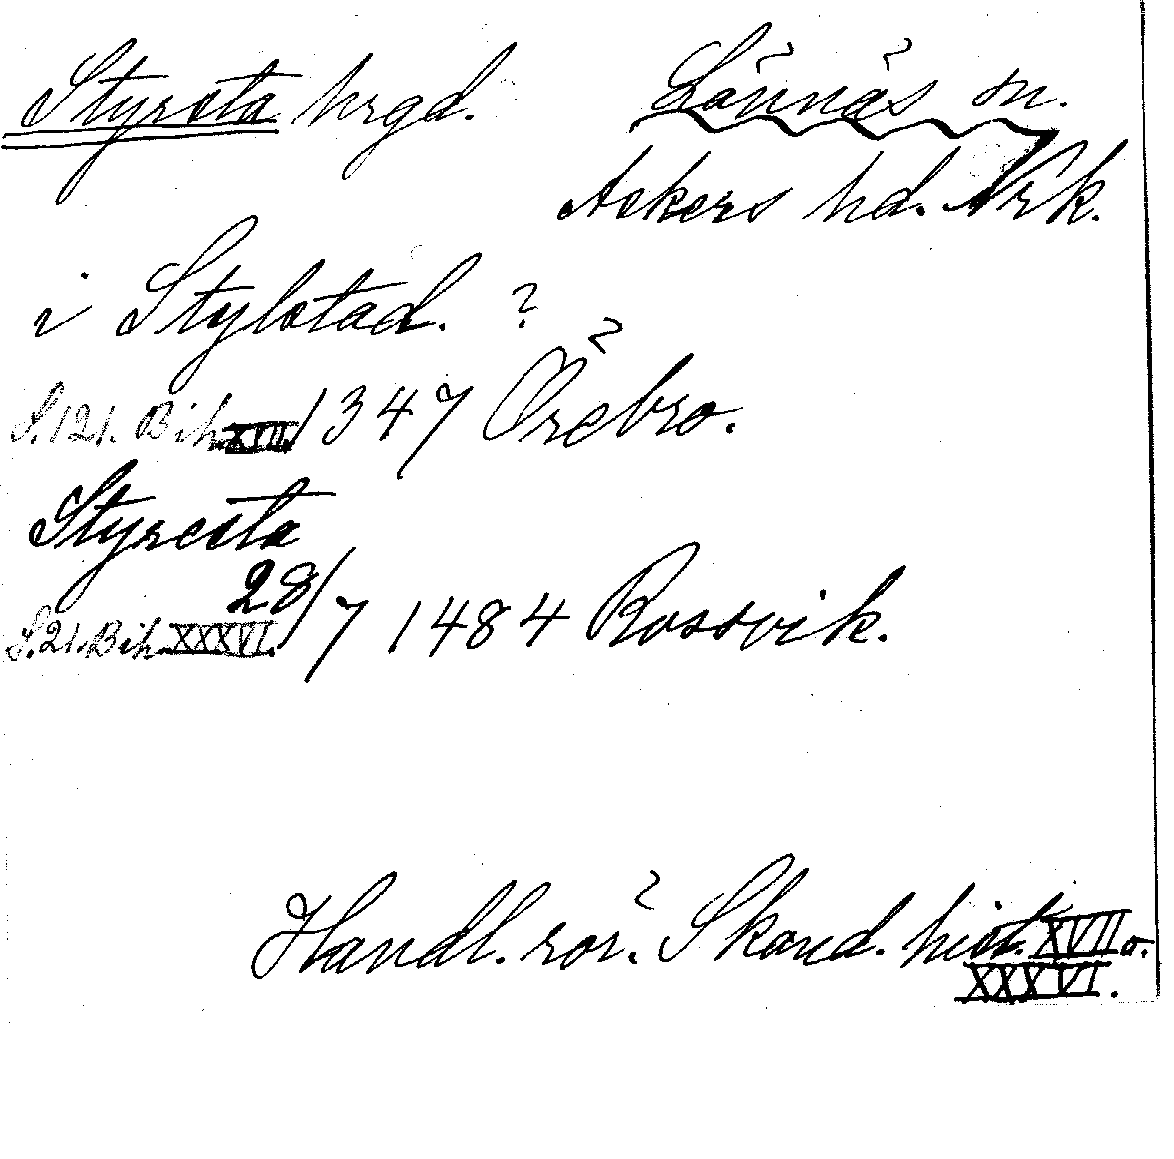 Styrsta hrgd. Lännäs sn.
Askers hd. Nrk.
i Stylstad. ?
S. 121. Bih. XVII. 1347 Örebro.
Styresta
S. 21. Bih. XXXVI. 28/7 1484 Rossvik.
Handl. rör. Skand. hist. XVII o.
XXXVI.